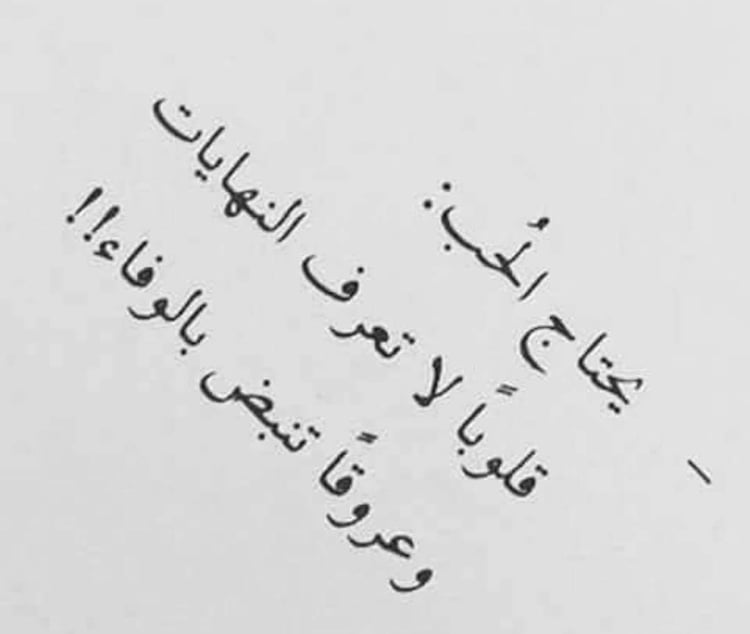 - يحتاج الحُب:
قلوباً لا تعرف النهايات
وعروقاً تنبض بالوفاء!!